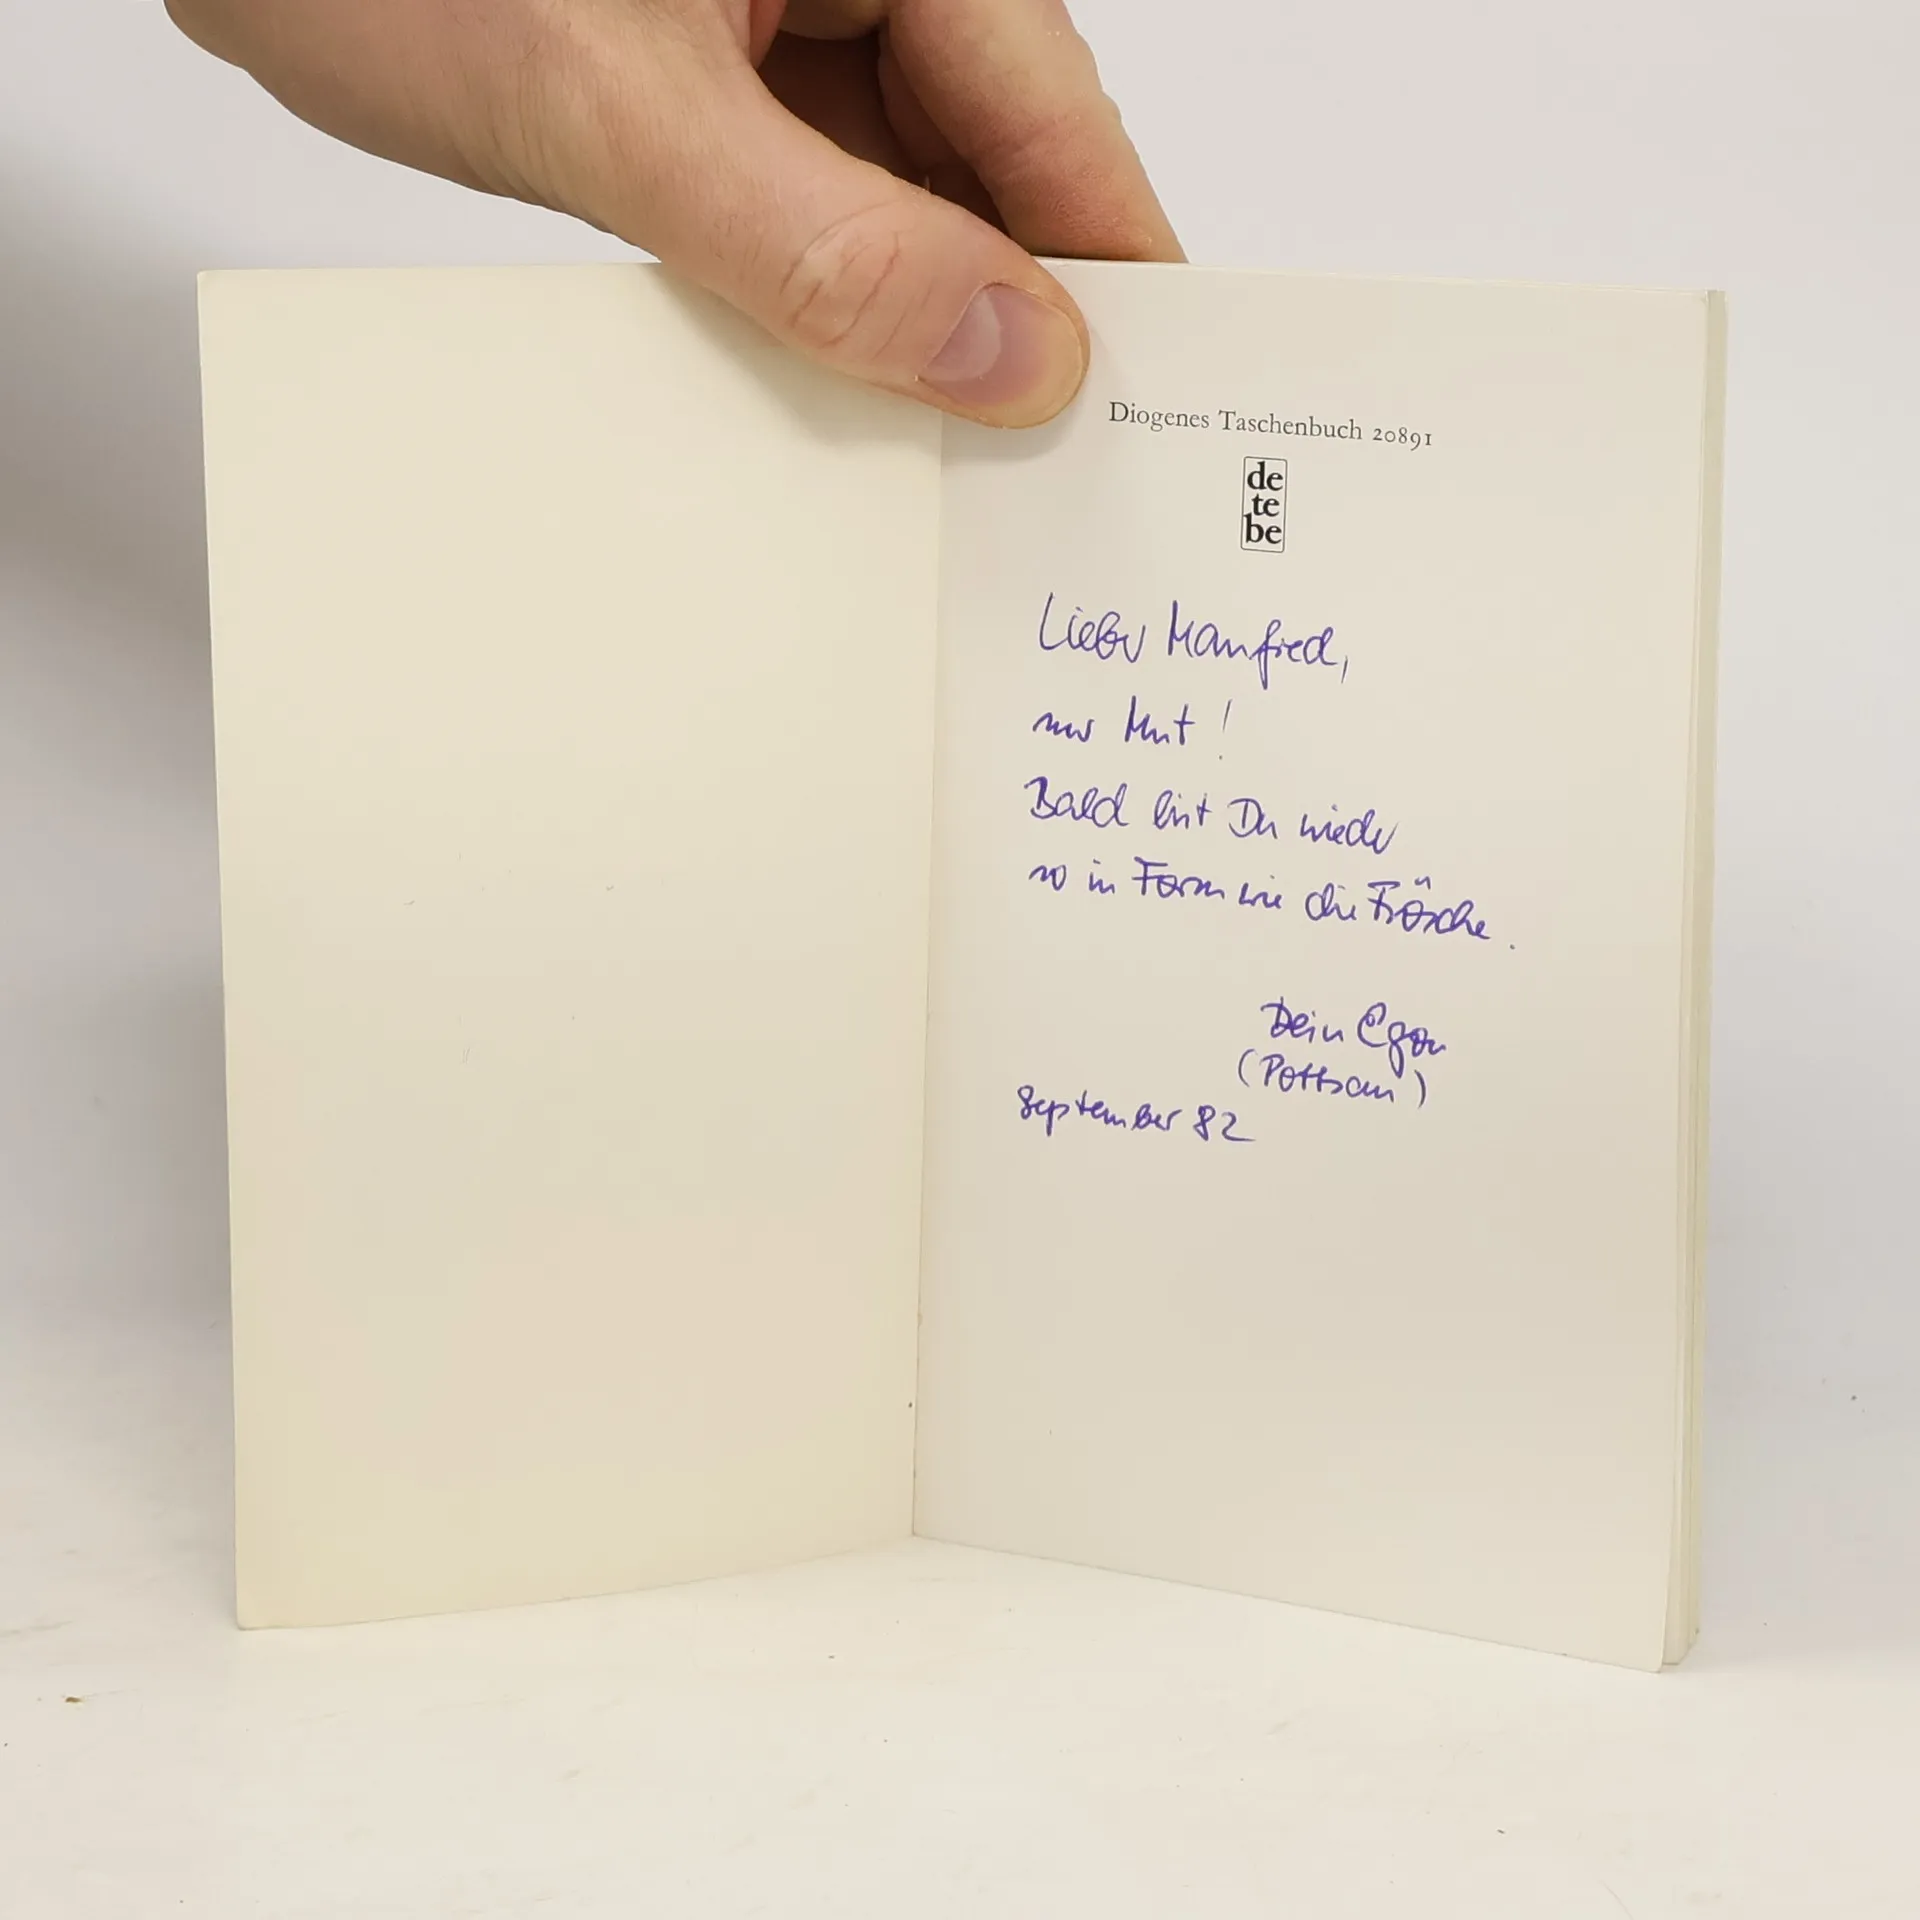 Diogenes Taschenbuch 20891
de
te
be
Lieber Manfred,
nur Mut!
Bald bist Du wieder
so in Form wie die Frösche.
Dein Egon
(Pottsau)
September 82